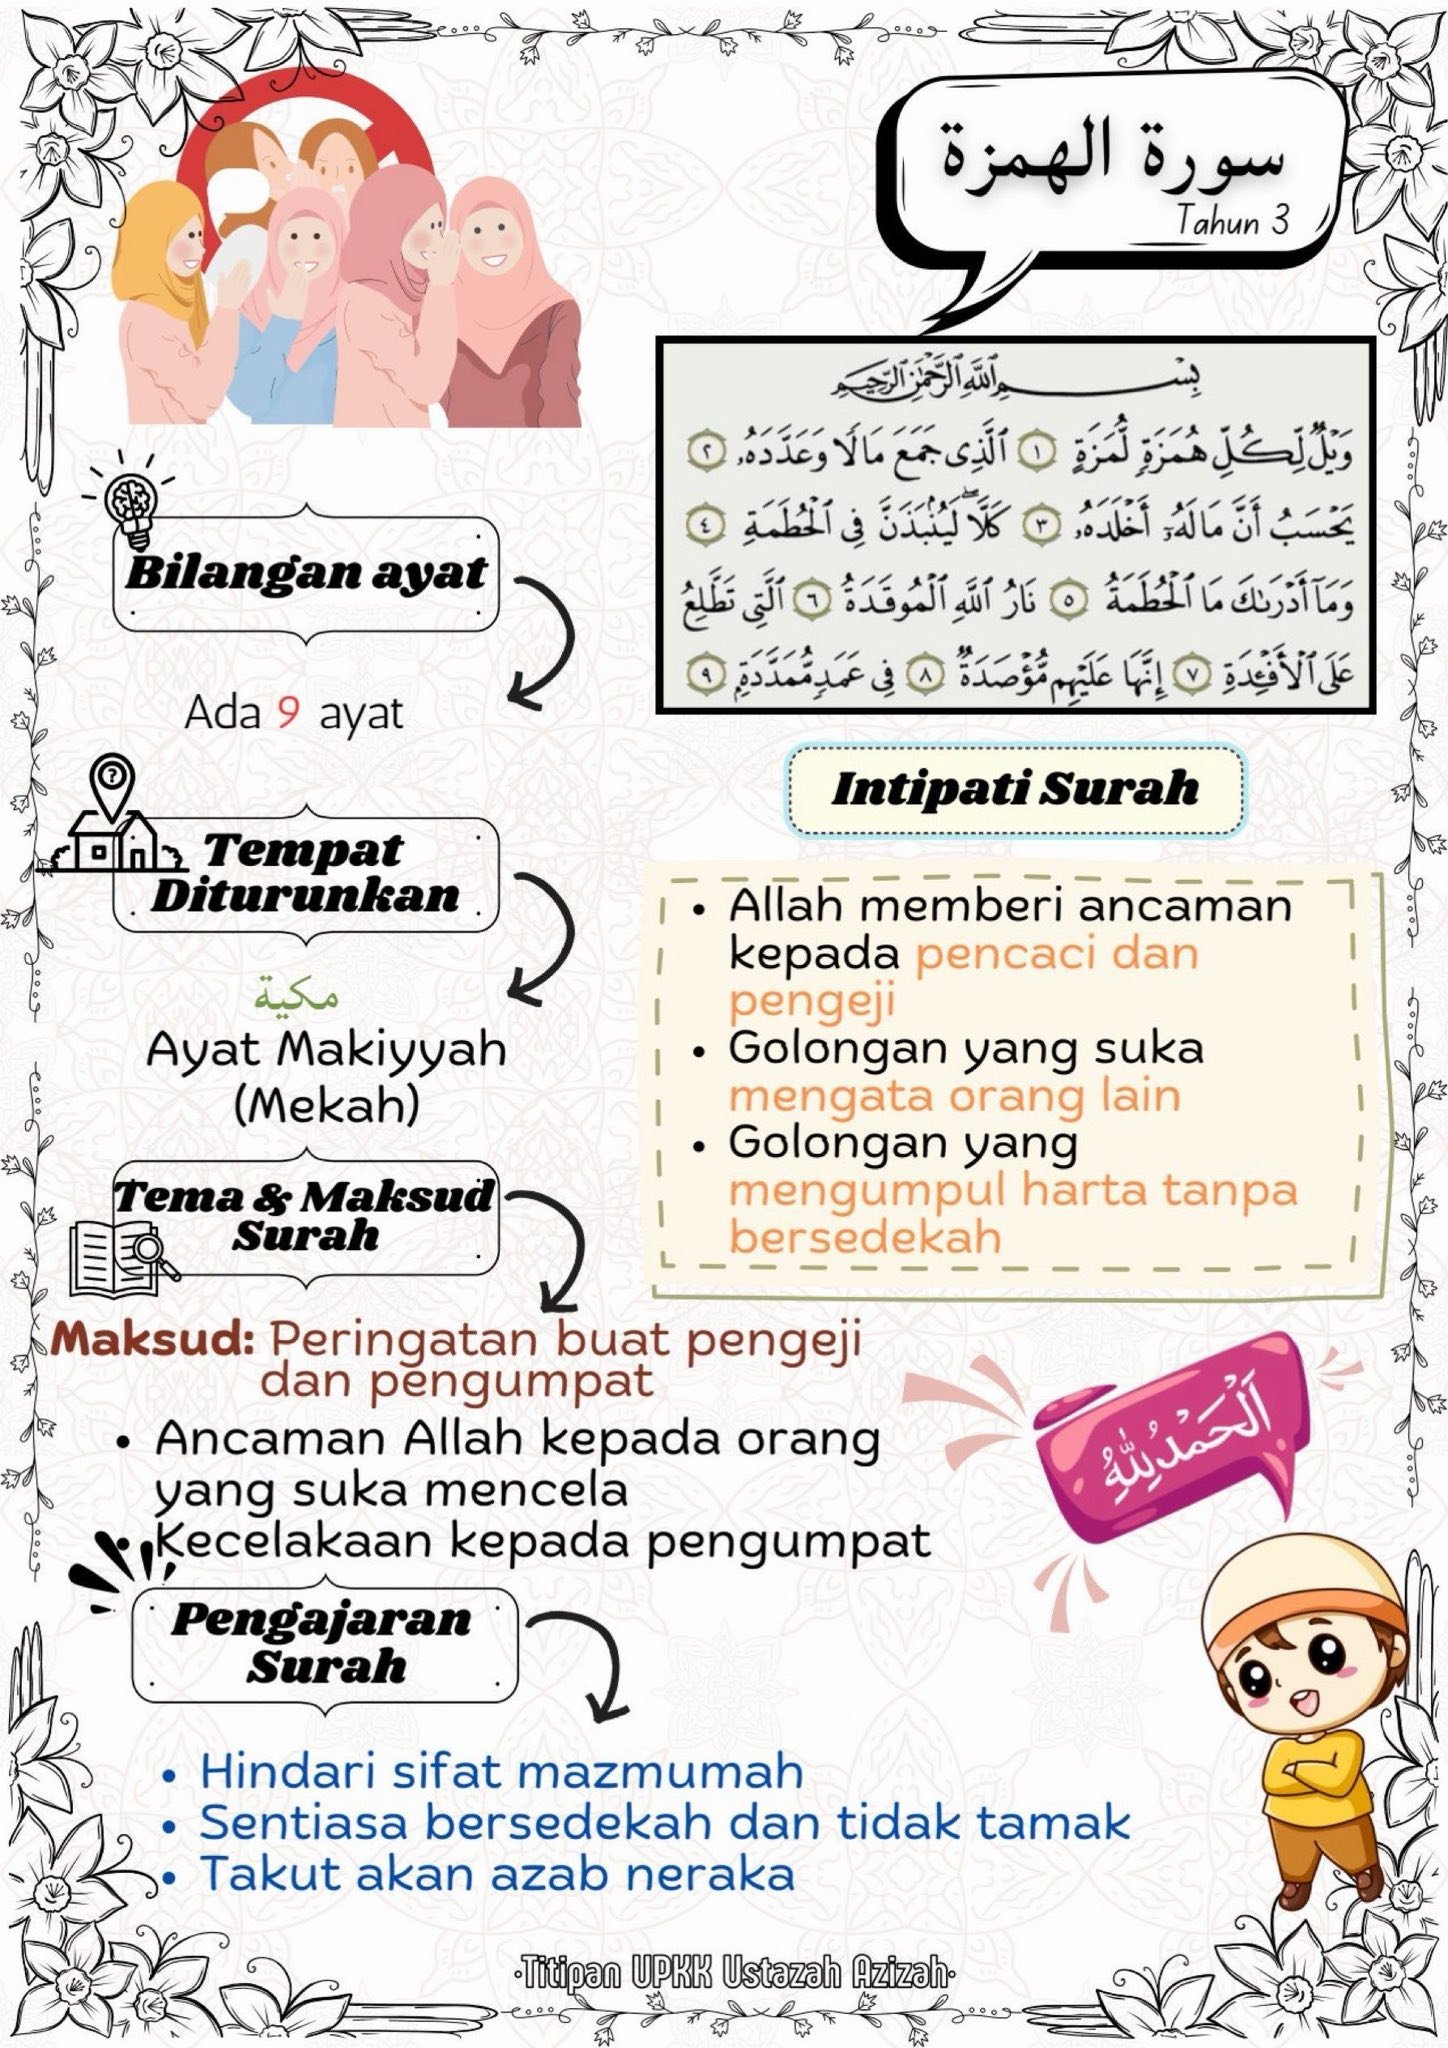 سورة الهمزة
Tahun 3
بِسْمِ اللَّهِ الرَّحْمَٰنِ الرَّحِيمِ
وَيْلٌ لِّكُلِّ هُمَزَةٍ لُّمَزَةٍ ١ ٱلَّذِى جَمَعَ مَالًا وَعَدَّدَهُۥ ٢
يَحْسَبُ أَنَّ مَالَهُۥٓ أَخْلَدَهُۥ ٣ كَلَّا ۖ لَيُنۢبَذَنَّ فِى ٱلْحُطَمَةِ ٤
وَمَآ أَدْرَىٰكَ مَا ٱلْحُطَمَةُ ٥ نَارُ ٱللَّهِ ٱلْمُوقَدَةُ ٦ ٱلَّتِى تَطَّلِعُ
عَلَى ٱلْأَفْـِٔدَةِ ٧ إِنَّهَا عَلَيْهِم مُّؤْصَدَةٌ ٨ فِى عَمَدٍ مُّمَدَّدَةٍۭ ٩
Bilangan ayat
Ada 9 ayat
Tempat
Diturunkan
مكية
Ayat Makiyyah
(Mekah)
Intipati Surah
• Allah memberi ancaman
kepada pencaci dan
pengeji
• Golongan yang suka
mengata orang lain
• Golongan yang
mengumpul harta tanpa
bersedekah
Tema & Maksud
Surah
Maksud: Peringatan buat pengeji
dan pengumpat
• Ancaman Allah kepada orang
yang suka mencela
• Kecelakaan kepada pengumpat
اَلْحَمْدُ لِلّٰهِ
Pengajaran
Surah
• Hindari sifat mazmumah
• Sentiasa bersedekah dan tidak tamak
• Takut akan azab neraka
•Titipan UPKK Ustazah Azizah•